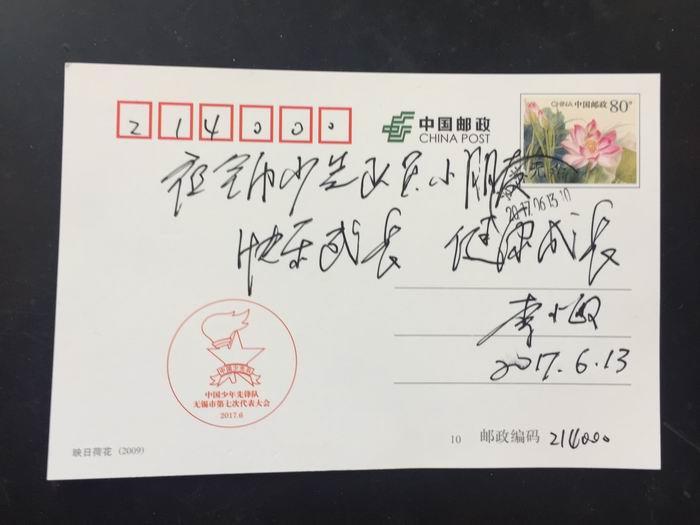 CHINA 中国邮政 80分
214000
中国邮政
CHINA POST
祝全市少先队员小朋友
2017.06.13.10
快乐成长 健康成长
李小敏
2017.6.13
中国少年先锋队
无锡市第七次代表大会
2017.6
映日荷花 (2009)
10 邮政编码 214000